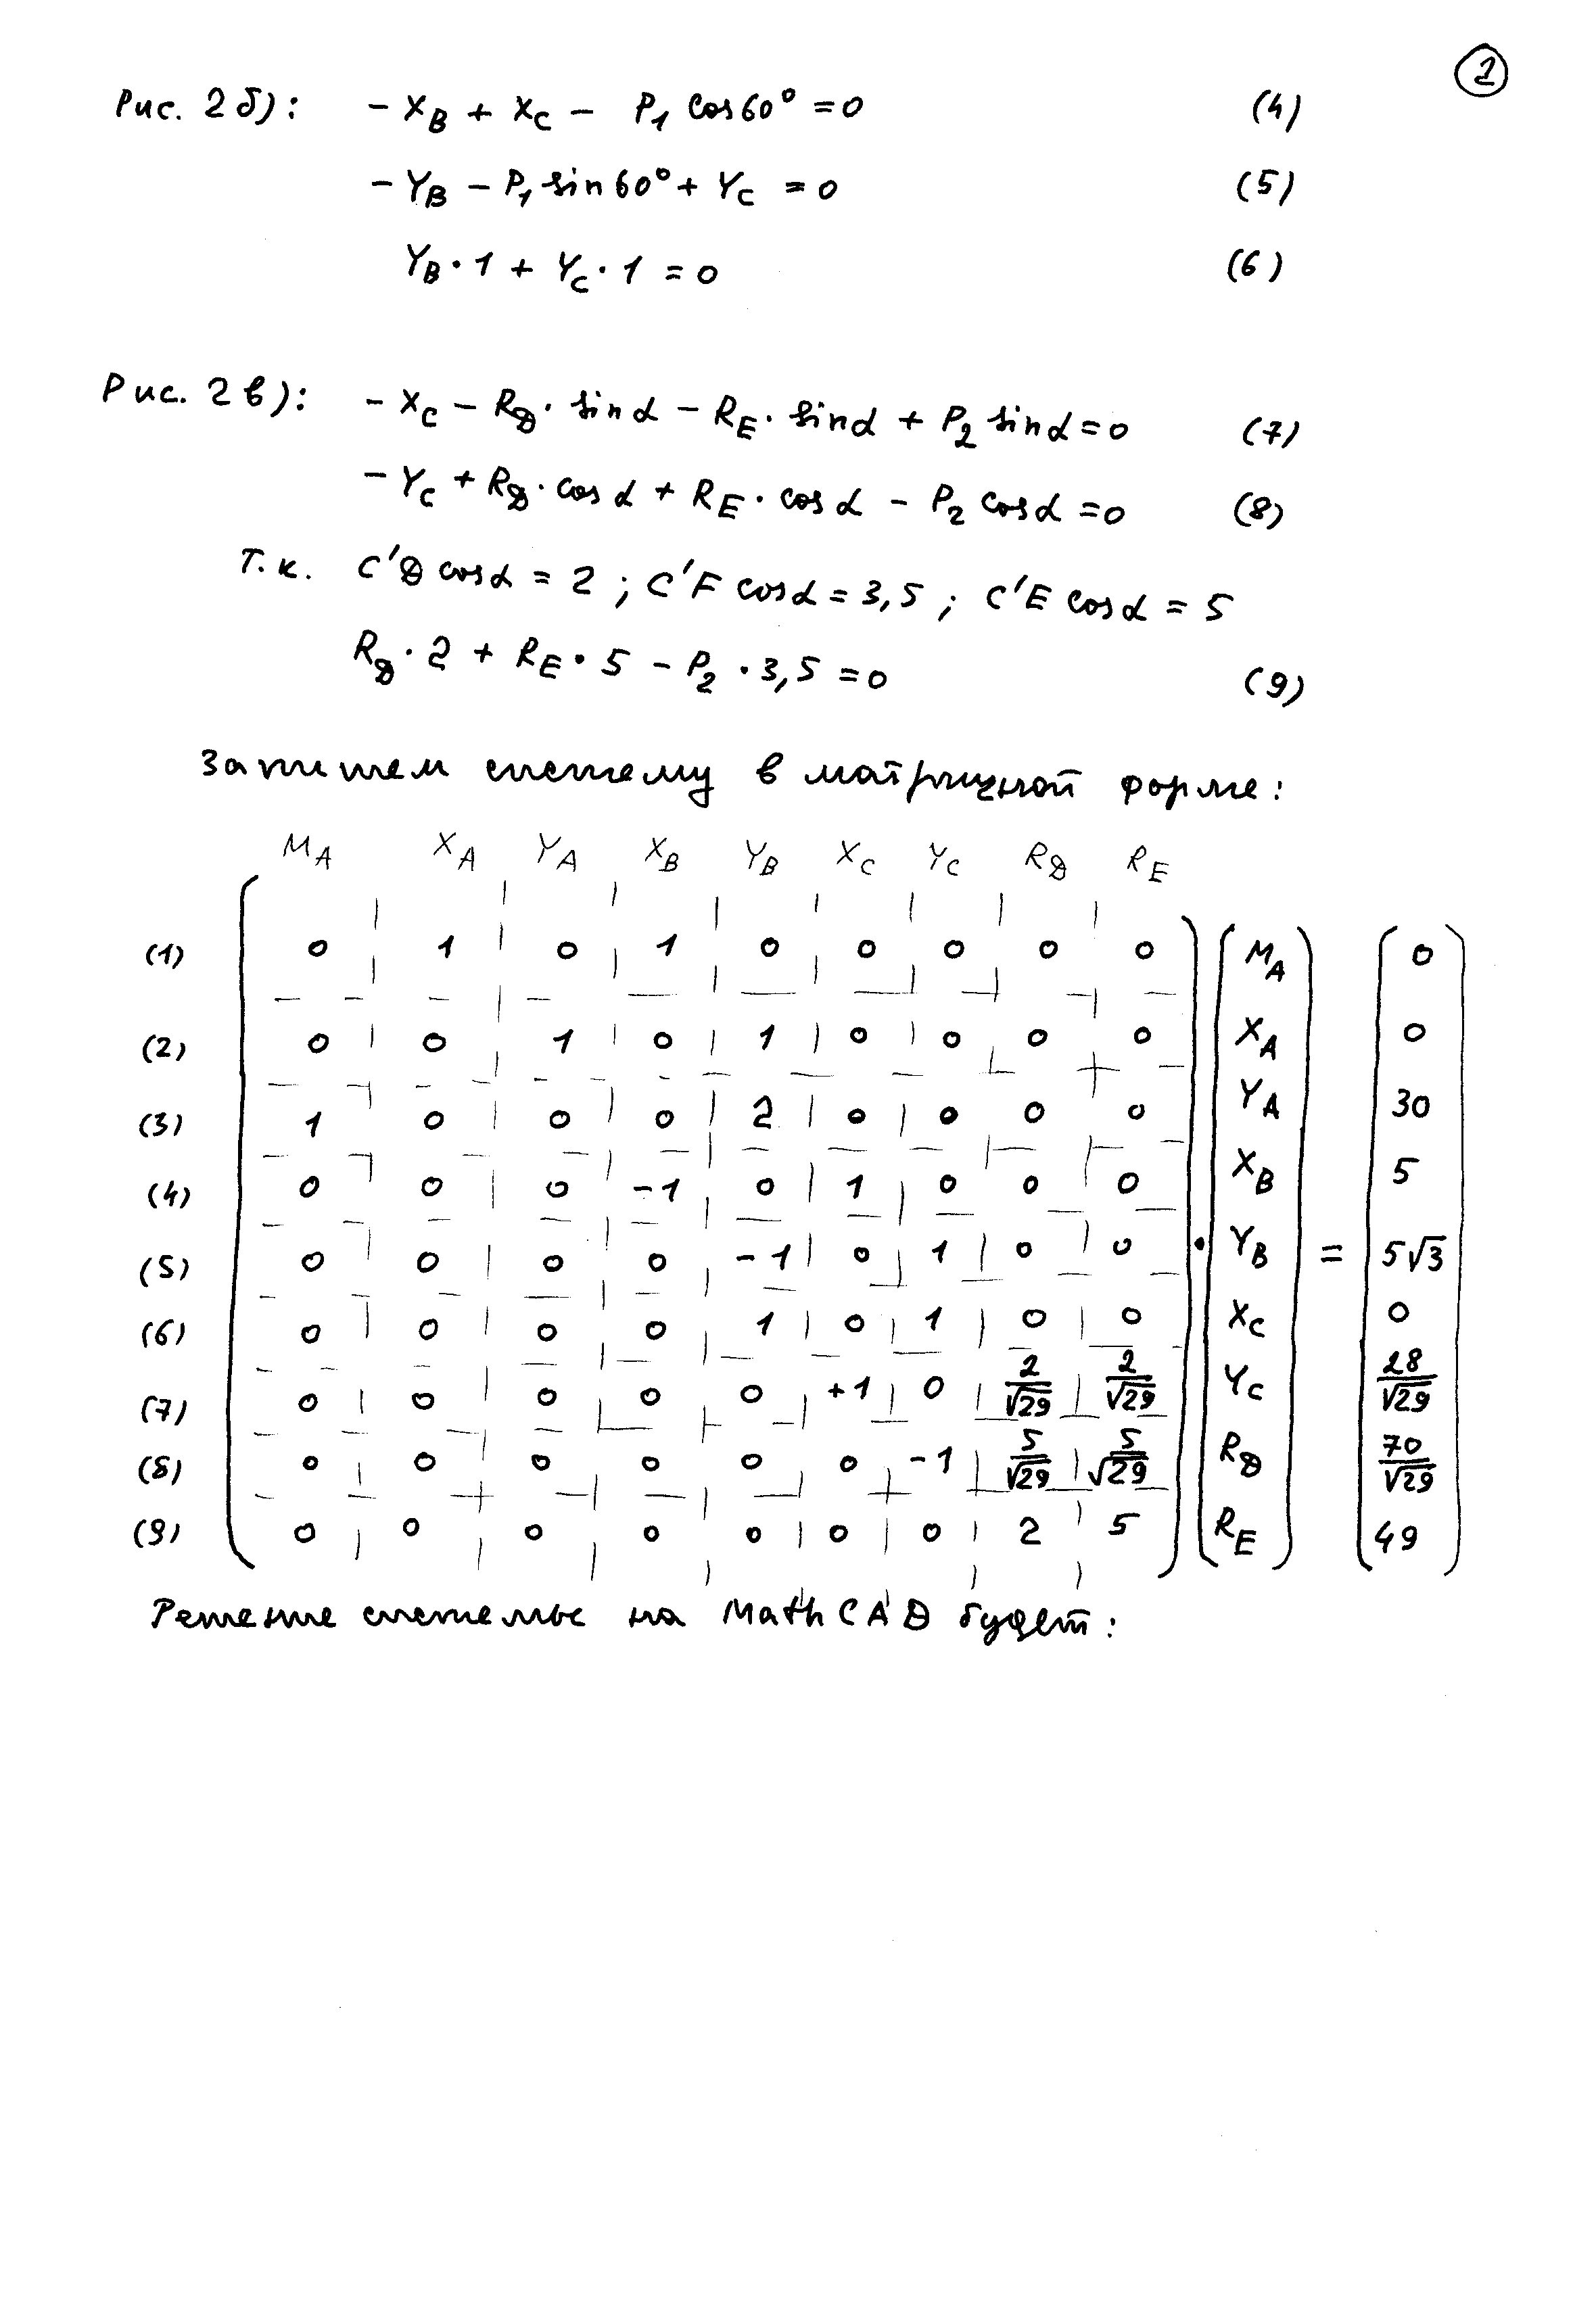 2
Рис. 2 б): - X_B + X_C - P_1 cos 60° = 0 (4)
- Y_B - P_1 sin 60° + Y_C = 0 (5)
Y_B · 1 + Y_C · 1 = 0 (6)
Рис. 2 в): - X_C - R_D · sin α - R_E · sin α + P_2 sin α = 0 (7)
- Y_C + R_D · cos α + R_E · cos α - P_2 cos α = 0 (8)
Т.к. C'D cos α = 2 ; C'F cos α = 3,5 ; C'E cos α = 5
R_D · 2 + R_E · 5 - P_2 · 3,5 = 0 (9)
Запишем систему в матричной форме:
M_A X_A Y_A X_B Y_B X_C Y_C R_D R_E
(1) 0 1 0 1 0 0 0 0 0 M_A 0
(2) 0 0 1 0 1 0 0 0 0 X_A 0
(3) 1 0 0 0 2 0 0 0 0 Y_A 30
(4) 0 0 0 -1 0 1 0 0 0 X_B 5
(5) 0 0 0 0 -1 0 1 0 0 · Y_B = 5√3
(6) 0 0 0 0 1 0 1 0 0 X_C 0
(7) 0 0 0 0 0 +1 0 2/√29 2/√29 Y_C 28/√29
(8) 0 0 0 0 0 0 -1 5/√29 5/√29 R_D 70/√29
(9) 0 0 0 0 0 0 0 2 5 R_E 49
Решение системы на MathCAD будет: